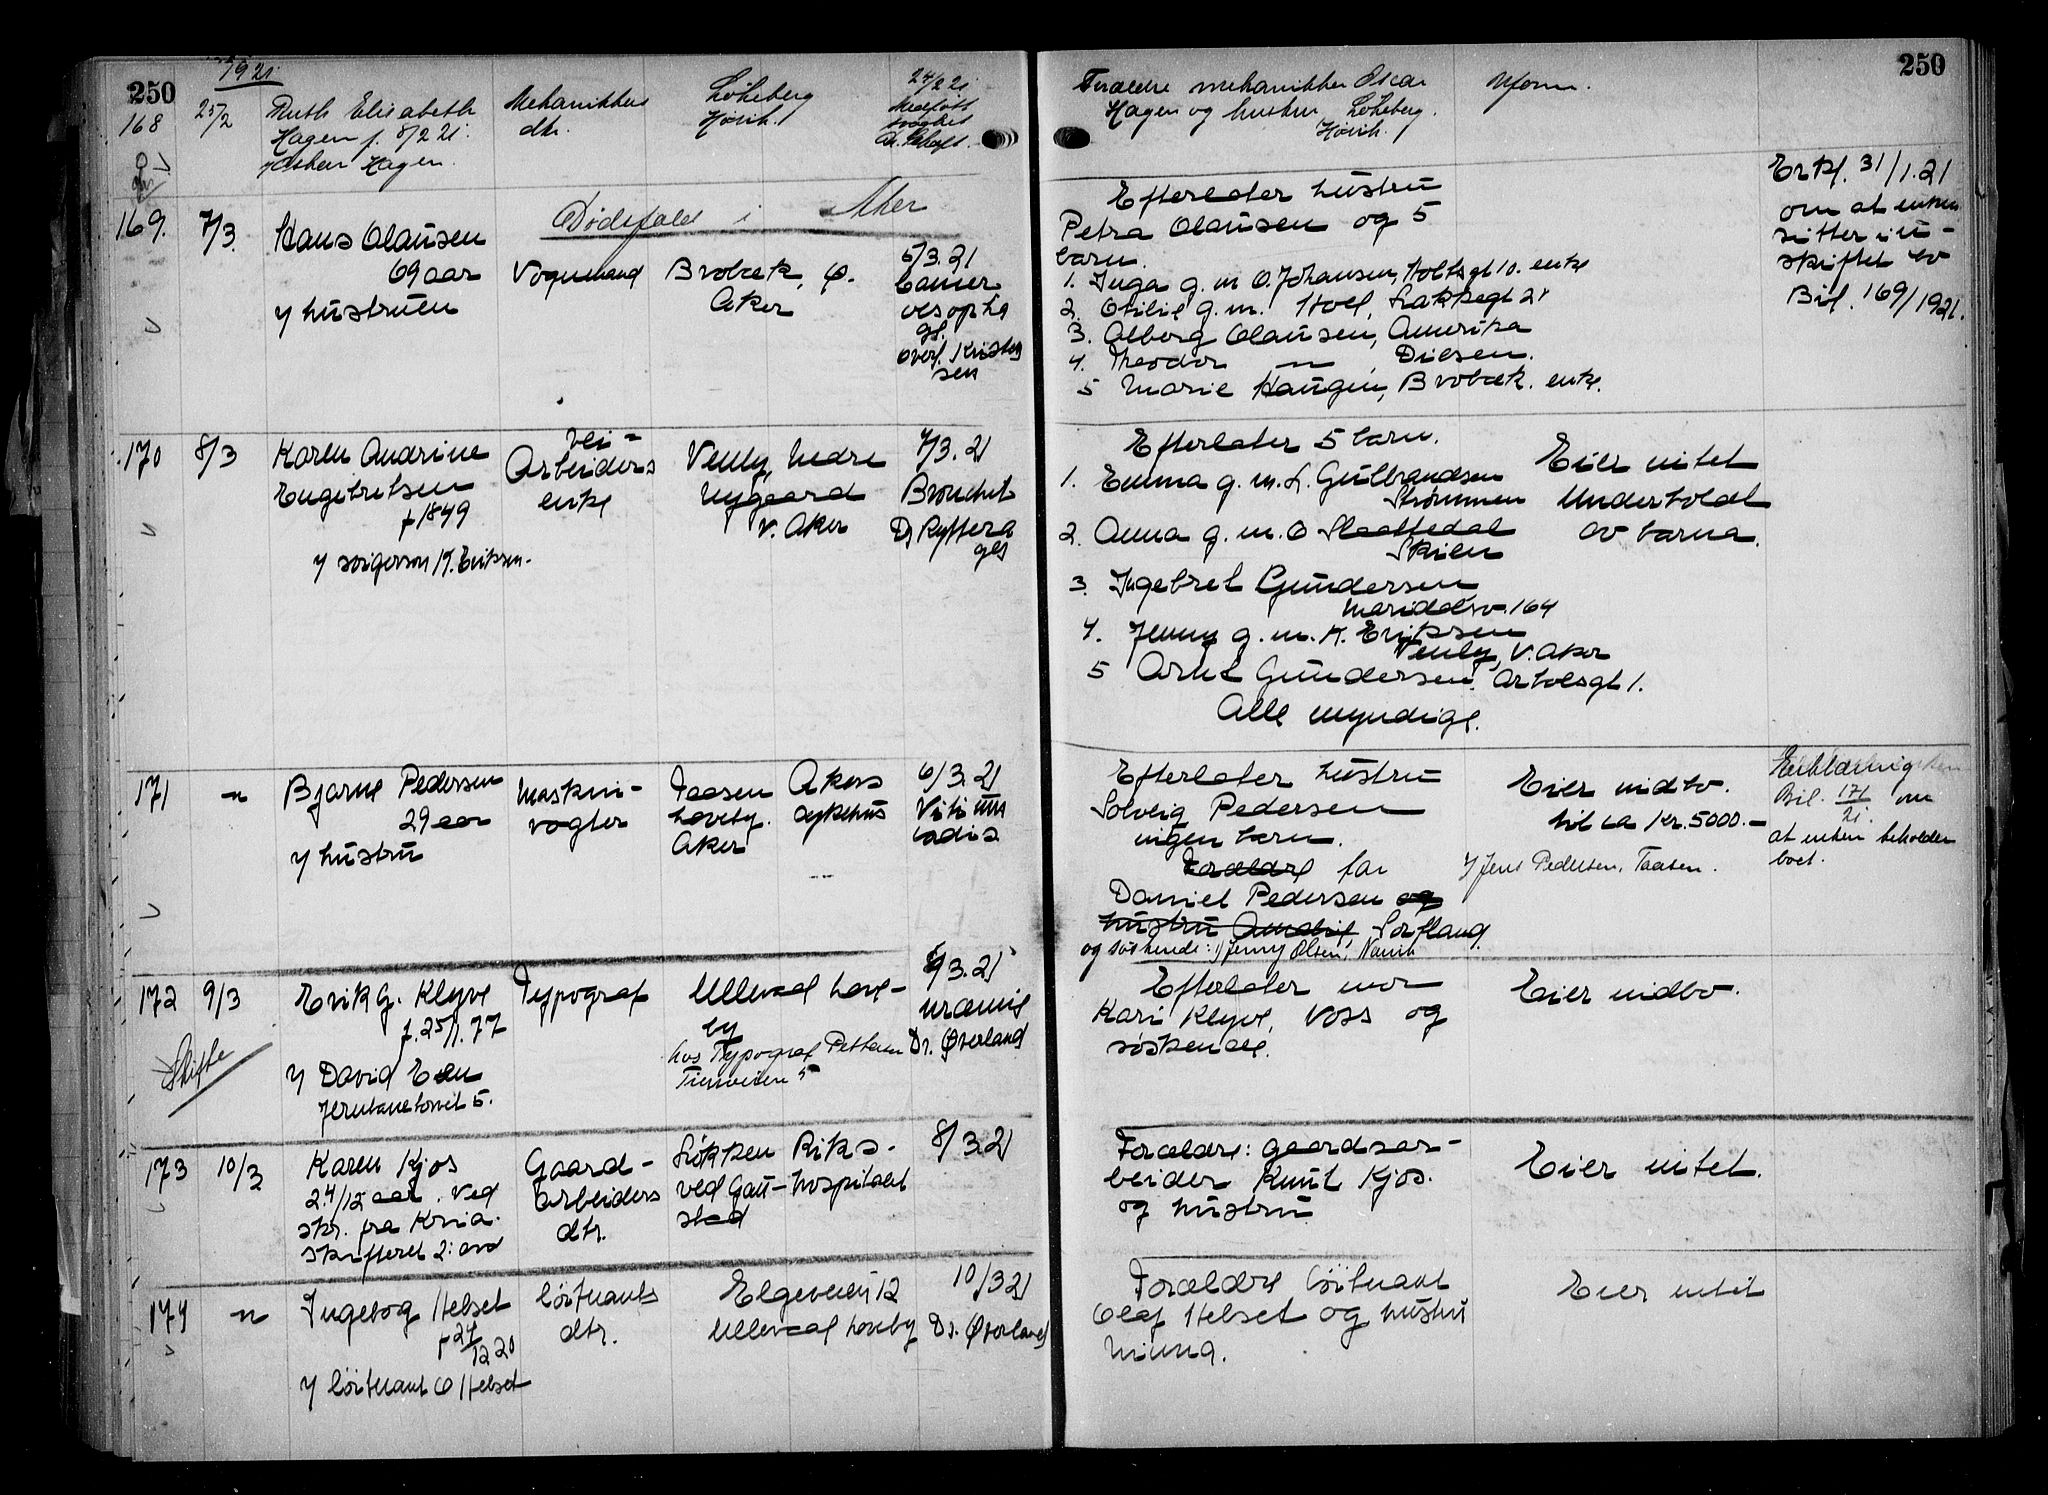 250
1921
168
25/2
Ruth Elisabeth
Hagen f. 8/2 21
Mekanikkers
dtr.
Løkeberg
Høvik.
24/2 21
Forældre mekanikker Oscar
Hagen og hustru Løkeberg.
Høvik.
Uform.
250
Dødsfald i Aker
169.
7/3
Hans Olausen
69 aar
v/ hustruen
Vognmand
Brobæk, Ø.
Aker
5/3.21
Cancer
oesopha
gi.
Overl. Kristen
sen
Efterlater hustru
Petra Olausen og 5
barn.
1. Inga g. m. O. Johansen, Holtsgt 10. enke
2. Otilie g. m. Holl, Lakkegt 21
3. Alborg Olausen, Amerika
4. Theodor — " — Diesen.
5 Marie Haugen, Brobæk. enke.
Erkl. 31/1.21
om at enken
sitter i u-
skiftet bo
Bil. 169/1921.
170
8/3
Karen Andrine
Engebretsen
f 1849
v/ svigersøn K. Eriksen.
Vei-
Arbeiders
enke
Venly, Nedre
Nygaard
V. Aker
7/3.21
Bronchit
Efterlater 5 barn.
1. Emma g. m. L. Gulbrandsen
Strømmen
2. Anna g. m. O Slaattedal
Skien
3. Ingebret Gundersen
Maridalsv. 164
4. Jenny g. m. K. Eriksen
Venly, V. Aker
5 Arnt Gundersen. Arbolsgt 1.
Alle myndige.
Eier intet
Underholdt
av barna.
171
— " —
Bjarne Pedersen
29 aar
v/ hustru
Maskin-
vogter
Taasen
haveby.
Aker
Akers
sykehus
6/3.21
Vitium
cordis
Efterlater hustru
Solveig Pedersen
ingen barn.
Forældre far
Daniel Pedersen og
hustru Amalie, Sørfland
og søskende: 1) Jenny Olsen, Narvik
Eier indbo.
til ca Kr. 5000.—
v/ Jens Pedersen, Taasen.
Erklæring
Bil. 171/21. om
at enken beholder
boet.
172
9/3
Skifte
Erik G. Klyve
f. 25/1.77
v/ David Eden
Jernbanetorvet 5.
Typograf
Ullevaal have-
by
hos Typograf Pettersen
5
6/3.21
uræmie
Dr. Øverland
Efterlater mor
Kari Klyve, Voss og
søskende.
Eier indbo.
173
10/3
Karen Kjos
2 4/12 aar. Ved
skr. fra Kria.
skifteret 2: avd
Gaard-
arbeiders
dtr.
Løkken
ved Gau-
stad
Riks-
hospitalet
8/3.21
Forældre: gaardsar-
beider Knut Kjos.
og hustru
Eier intet.
174
— " —
Ingebog Helset
f 24/12 20
v/ løitnant O Helset
Løitnants
dtr.
Elgeveien 12
Ullevaal haveby
10/3 21
Dr. Øverland
Forældre løitnant
Olaf Helset og hustru
Minna.
Eier intet